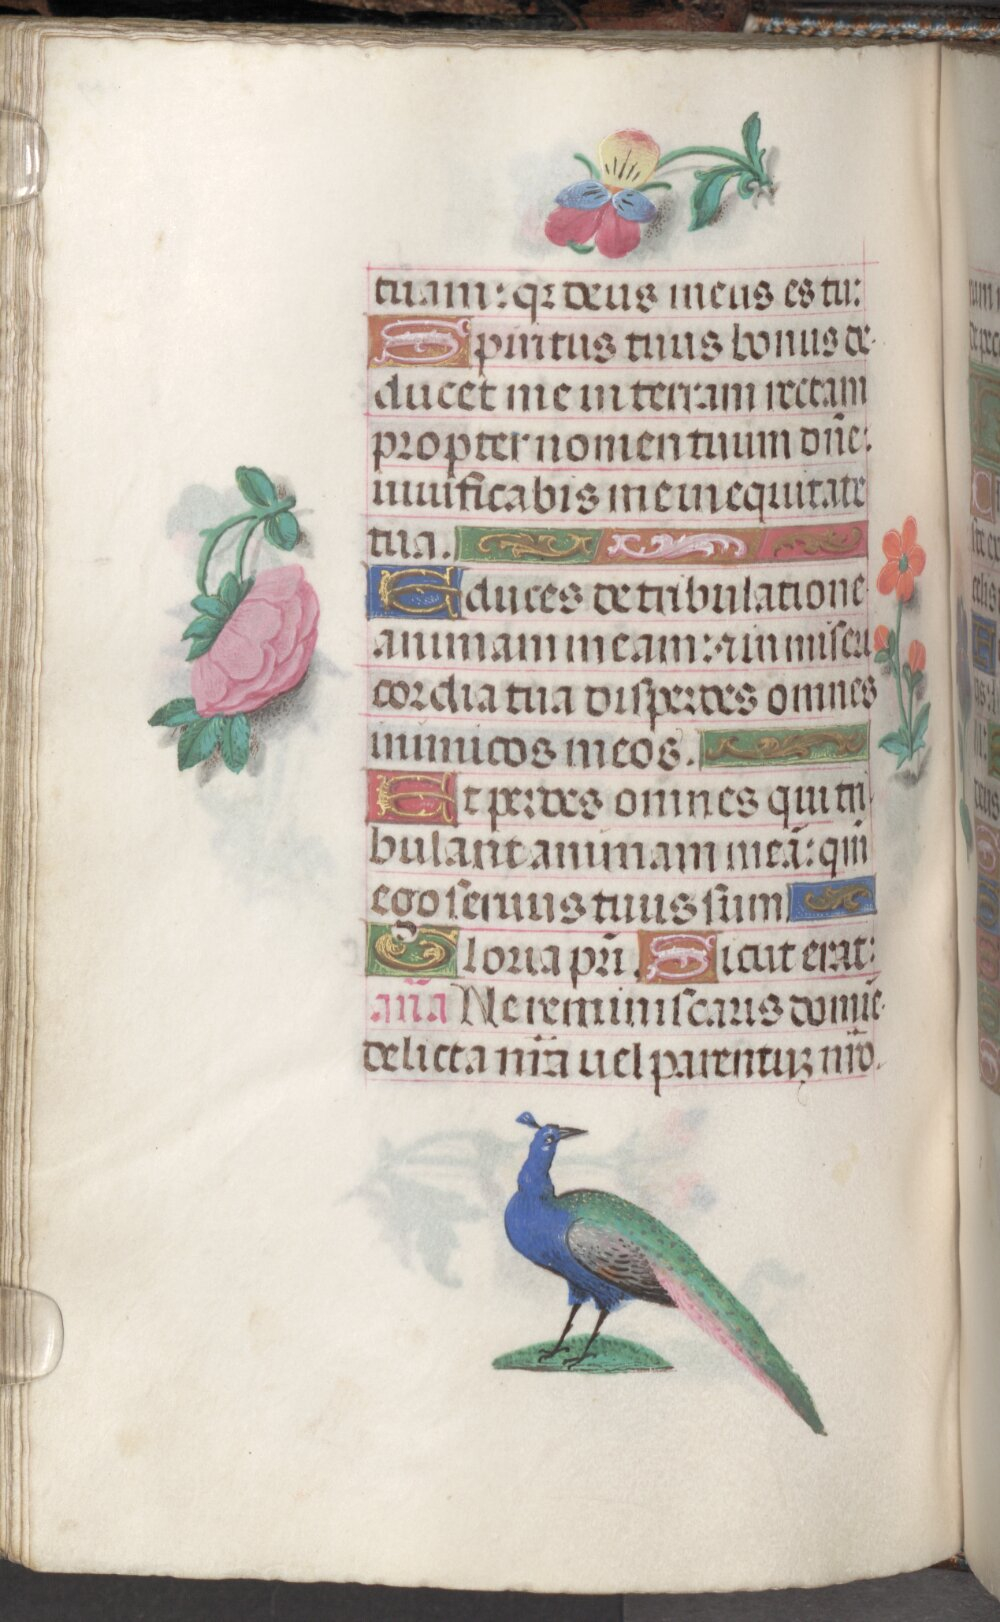 tuam: qz deus meus es tu:
Spiritus tuus bonus de-
ducet me in terram rectam
propter nomen tuum dñe:
uiuificabis me in equitate
tua.
Educes de tribulatione
animam meam: ⁊ in miseri
cordia tua disperdes omnes
inimicos meos.
Et perdes omnes qui tri
bulant animam meã: qm̃
ego seruus tuus sum
Gloria pri. Sicut erat:
aña Ne reminiscaris domie-
delicta nr̃a uel parentuz nr̃o.